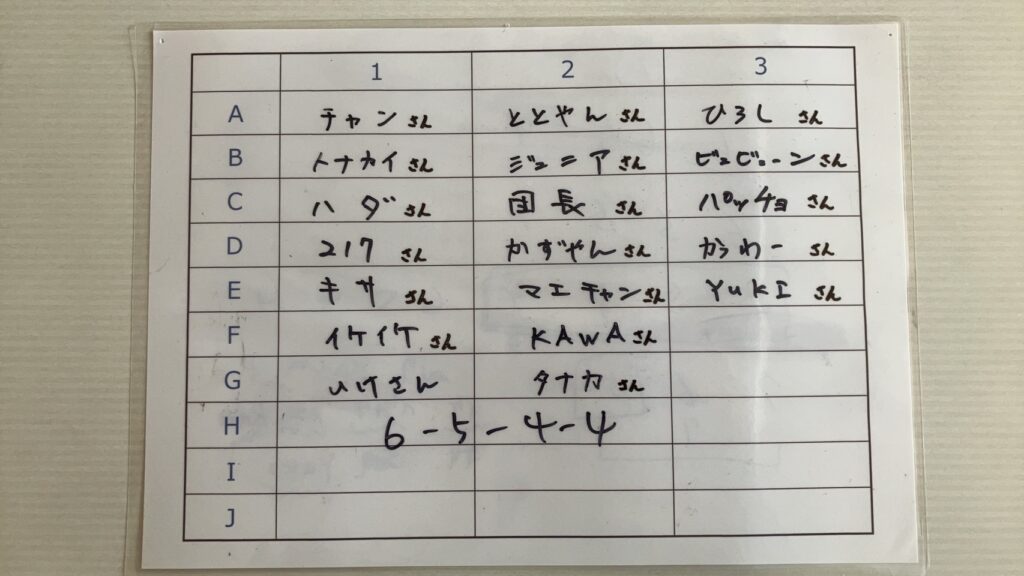 1 2 3
A チャンさん ととやんさん ひろしさん
B トナカイさん ジュニアさん ビュビューンさん
C ハダさん 団長さん パッチョさん
D 217さん かずやんさん かうわーさん
E キサさん マエチャンさん YUKIさん
F イケイケさん KAWAさん
G いけさん タナカさん
H 6-5-4-4
I
J